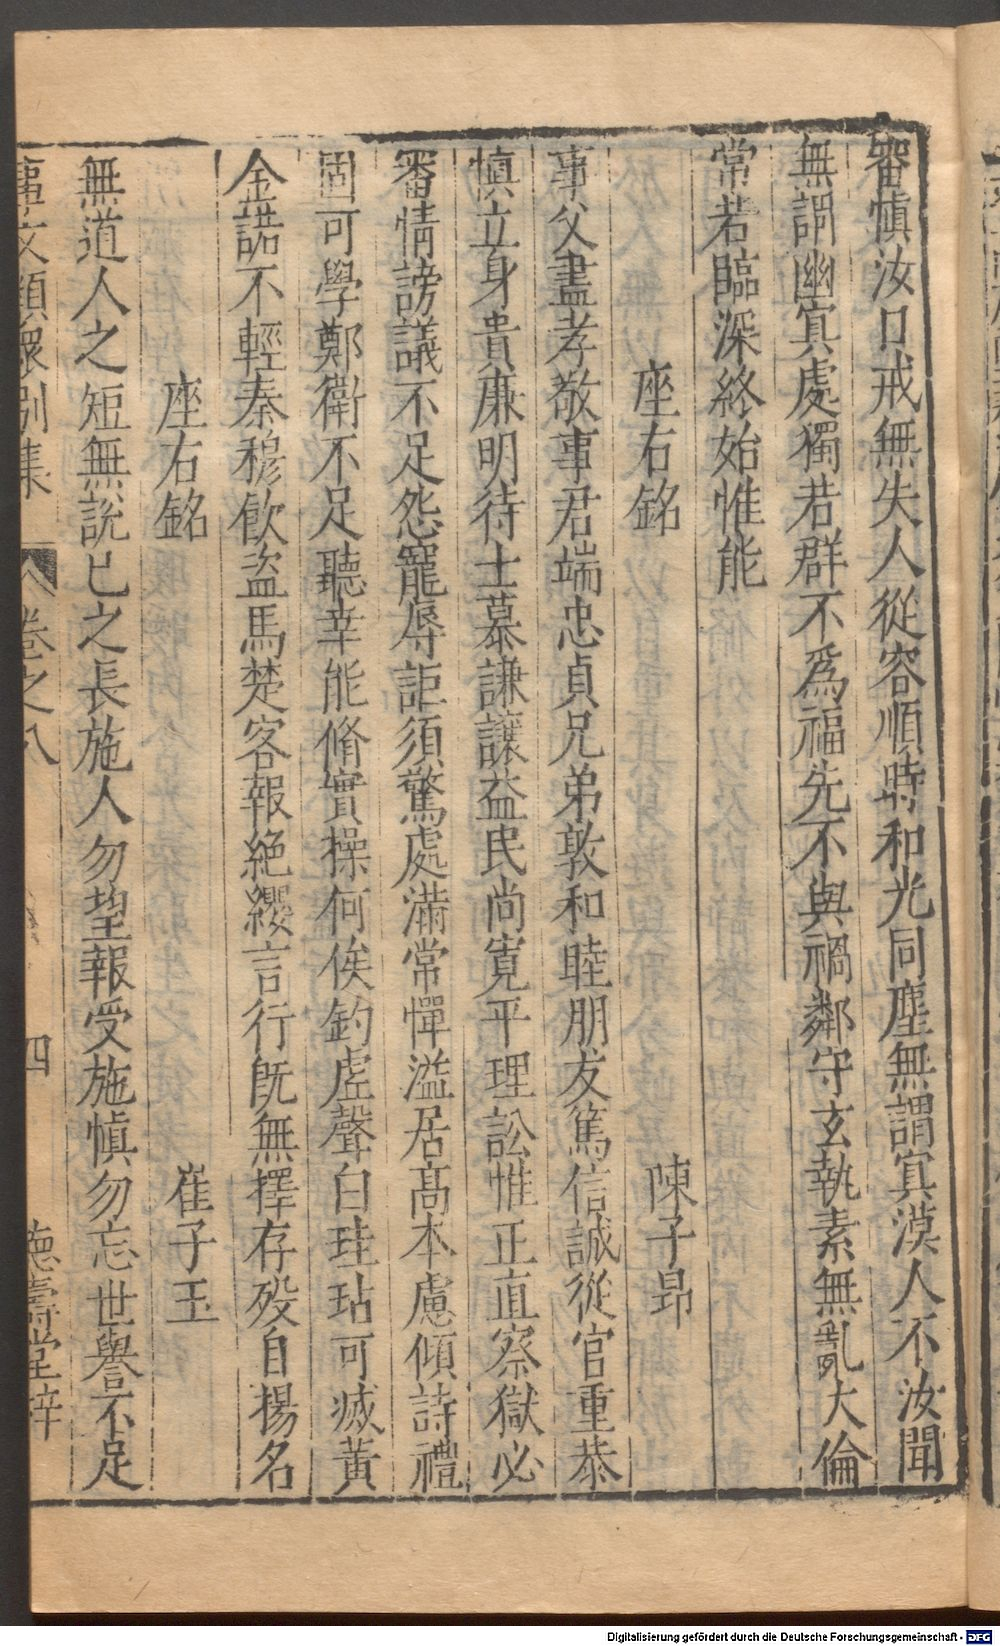 審慎汝口戒無失人從容順時和光同塵無謂㝠漠人不汝聞
無謂幽㝠處獨若群不爲福先不與禍鄰守玄執素無亂大倫
常若臨深終始惟能
座右銘　陳子昻
事父盡孝敬事君端忠貞兄弟敦和睦朋友篤信誠從官重恭
慎立身貴廉明待士慕謙讓益民尚寬平理訟惟正直察獄必
審情謗議不足怨寵辱詎須驚處滿常憚溢居髙本慮傾詩禮
固可學鄭衛不足聽幸能脩實操何俟釣虛聲白珪玷可滅黃
金諾不輕秦穆飮盜馬楚客報絶纓言行旣無擇存殁自揚名
座右銘　崔子玉
無道人之短無說已之長施人勿望報受施慎勿忘世譽不足
事文類聚別集　卷之八　四　德壽堂梓
Digitalisierung gefördert durch die Deutsche Forschungsgemeinschaft - DFG